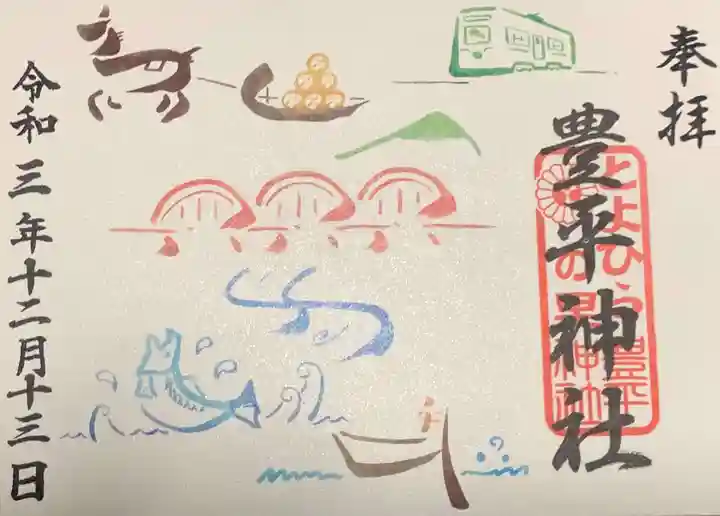 奉拝
豊平神社
とよひらの
豊平
神社
令和三年十二月十三日